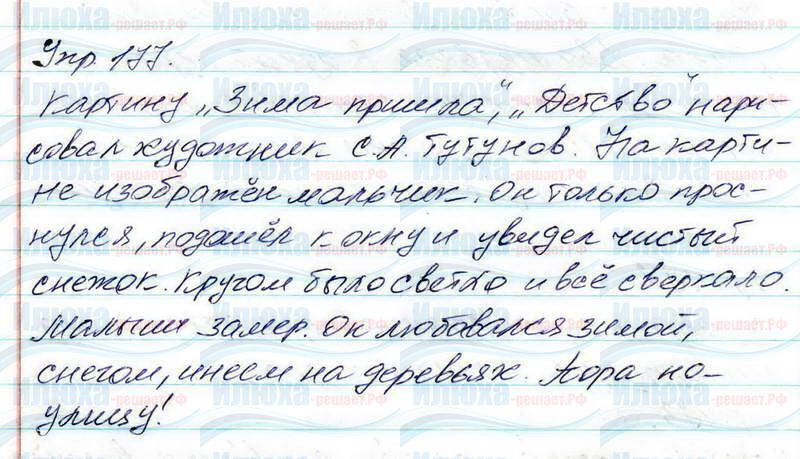 Упр. 177.
Картину „Зима пришла", „Детство" нари-
совал художник С.А. Тутунов. На карти-
не изображён мальчик. Он только прос-
нулся, подошёл к окну и увидел чистый
снежок. Кругом было светло и всё сверкало.
Малыш замер. Он любовался зимой,
снегом, инеем на деревьях. Пора на
улицу!